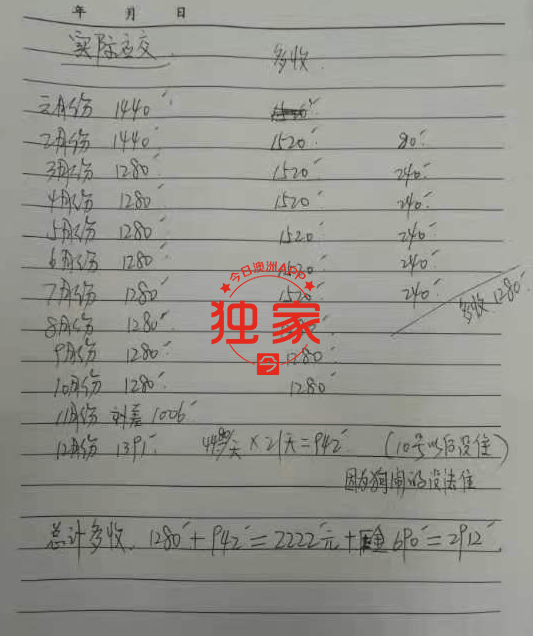 年 月 日
实际应交 多收
元月份 1440
2月份 1440 1520 80
3月份 1280 1520 240
4月份 1280 1520 240
5月份 1280 1520 240
6月份 1280 1520 240
7月份 1280 1520 240
多收1280
8月份 1280
9月份 1280 1280
10月份 1280 1280
11月份 刘差 1006
12月份 1391 天 × 21天 = 942 (10号以后没住)
因为狗闹的没法住
总计多收 1280 + 942 = 2222元 + 690 = 2912
今日澳洲APP
独家
今